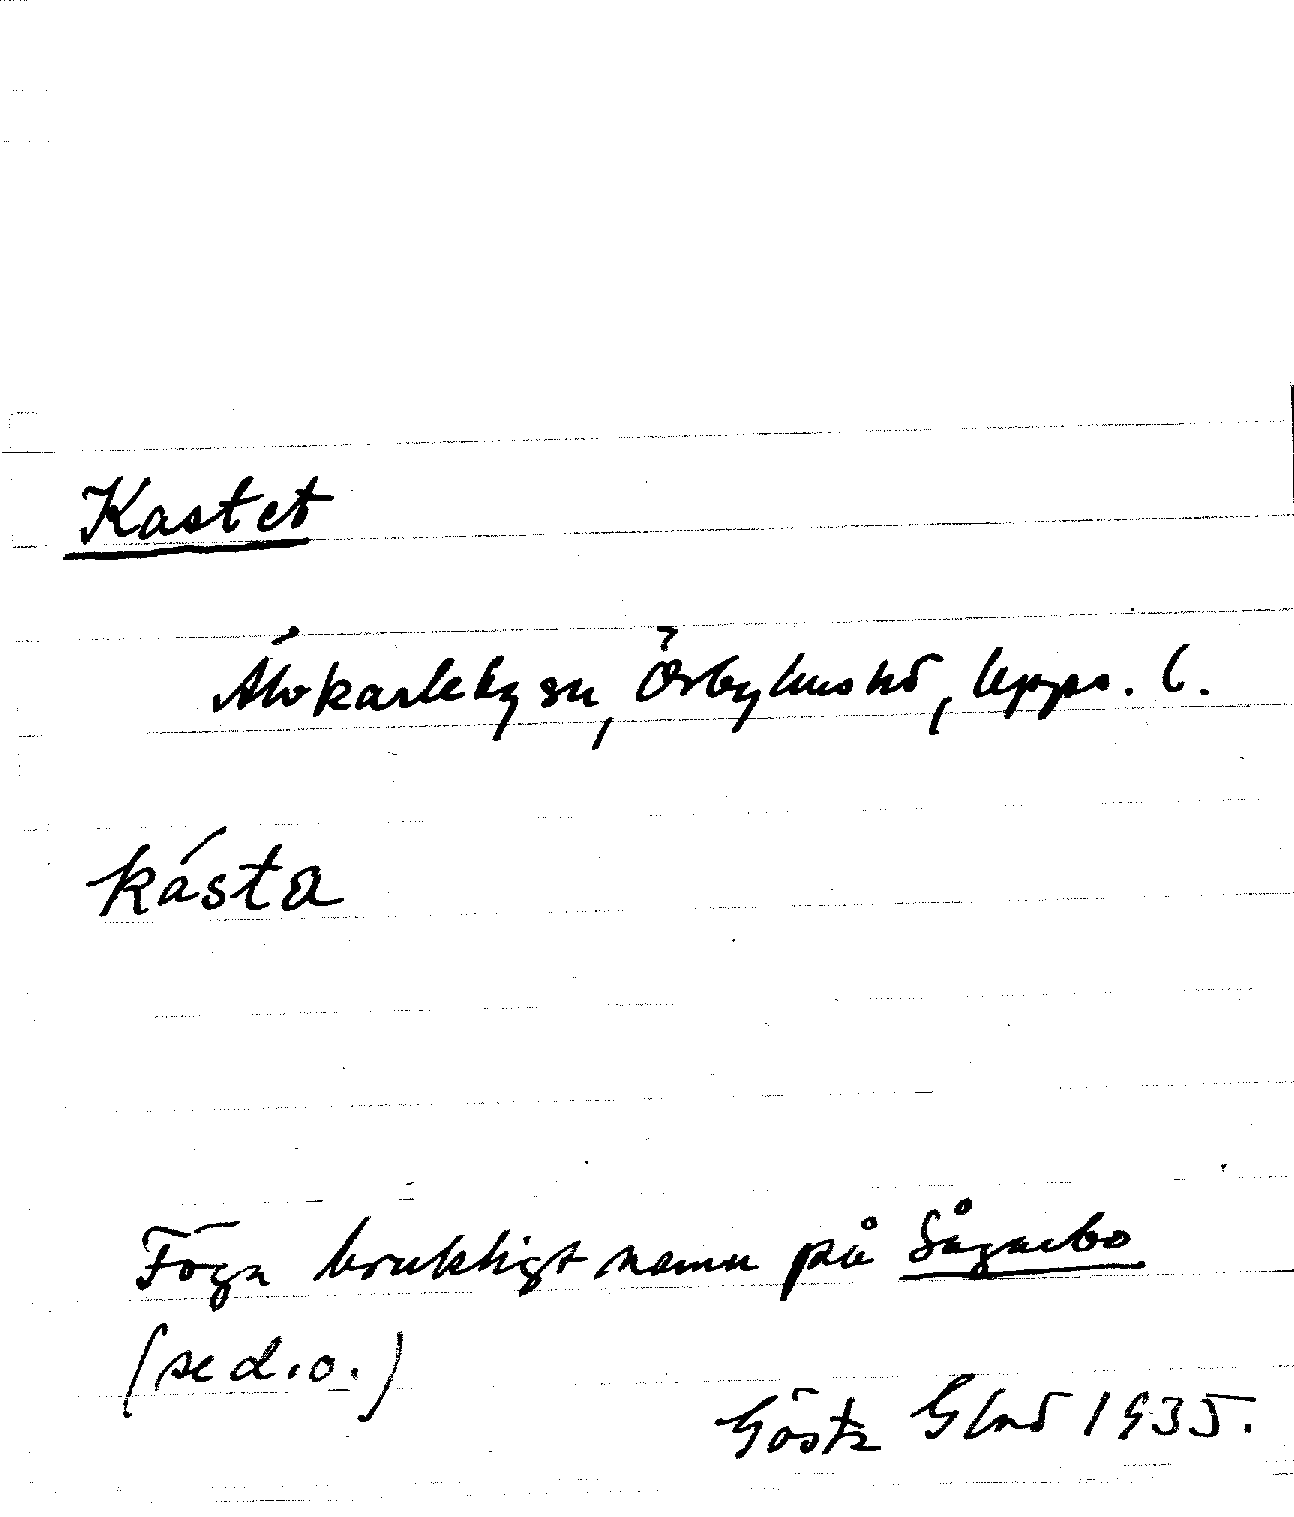 Kastet
Älvkarleby sn, Örbyhus hd, Upps. l.
kásta
Föga brukligt namn på Sågarbo
(se d.o.)
Gösta 1935.